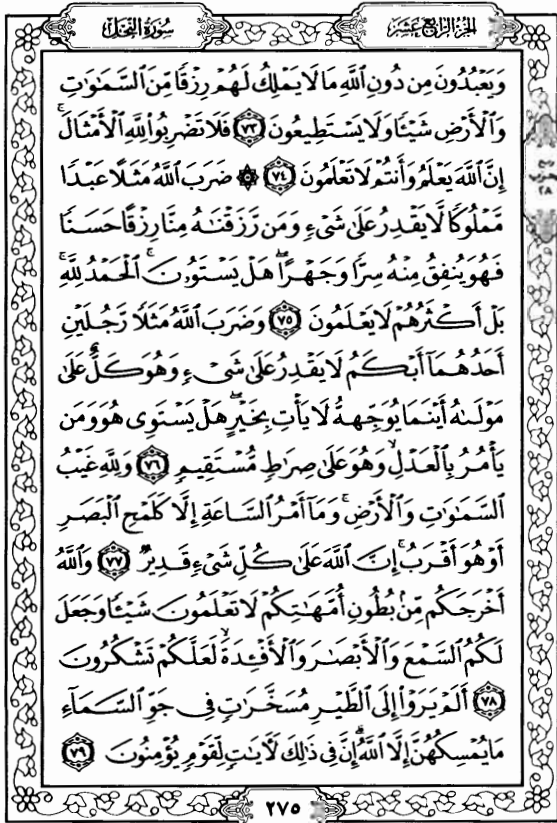 الجزء الرابع عشر
سورة النحل
وَيَعْبُدُونَ مِن دُونِ ٱللَّهِ مَا لَا يَمْلِكُ لَهُمْ رِزْقًا مِّنَ ٱلسَّمَٰوَٰتِ
وَٱلْأَرْضِ شَيْـًٔا وَلَا يَسْتَطِيعُونَ ٧٣ فَلَا تَضْرِبُوا۟ لِلَّهِ ٱلْأَمْثَالَ ۚ
إِنَّ ٱللَّهَ يَعْلَمُ وَأَنتُمْ لَا تَعْلَمُونَ ٧٤ ۞ ضَرَبَ ٱللَّهُ مَثَلًا عَبْدًا
مَّمْلُوكًا لَّا يَقْدِرُ عَلَىٰ شَىْءٍ وَمَن رَّزَقْنَٰهُ مِنَّا رِزْقًا حَسَنًا
فَهُوَ يُنفِقُ مِنْهُ سِرًّا وَجَهْرًا ۖ هَلْ يَسْتَوُۥنَ ۚ ٱلْحَمْدُ لِلَّهِ ۚ
بَلْ أَكْثَرُهُمْ لَا يَعْلَمُونَ ٧٥ وَضَرَبَ ٱللَّهُ مَثَلًا رَّجُلَيْنِ
أَحَدُهُمَآ أَبْكَمُ لَا يَقْدِرُ عَلَىٰ شَىْءٍ وَهُوَ كَلٌّ عَلَىٰ
مَوْلَىٰهُ أَيْنَمَا يُوَجِّههُّ لَا يَأْتِ بِخَيْرٍ ۖ هَلْ يَسْتَوِى هُوَ وَمَن
يَأْمُرُ بِٱلْعَدْلِ ۙ وَهُوَ عَلَىٰ صِرَٰطٍ مُّسْتَقِيمٍ ٧٦ وَلِلَّهِ غَيْبُ
ٱلسَّمَٰوَٰتِ وَٱلْأَرْضِ ۚ وَمَآ أَمْرُ ٱلسَّاعَةِ إِلَّا كَلَمْحِ ٱلْبَصَرِ
أَوْ هُوَ أَقْرَبُ ۚ إِنَّ ٱللَّهَ عَلَىٰ كُلِّ شَىْءٍ قَدِيرٌ ٧٧ وَٱللَّهُ
أَخْرَجَكُم مِّنۢ بُطُونِ أُمَّهَٰتِكُمْ لَا تَعْلَمُونَ شَيْـًٔا وَجَعَلَ
لَكُمُ ٱلسَّمْعَ وَٱلْأَبْصَٰرَ وَٱلْأَفْـِٔدَةَ ۙ لَعَلَّكُمْ تَشْكُرُونَ
٧٨ أَلَمْ يَرَوْا۟ إِلَى ٱلطَّيْرِ مُسَخَّرَٰتٍ فِى جَوِّ ٱلسَّمَآءِ
مَا يُمْسِكُهُنَّ إِلَّا ٱللَّهُ ۗ إِنَّ فِى ذَٰلِكَ لَءَايَٰتٍ لِّقَوْمٍ يُؤْمِنُونَ ٧٩
٢٧٥